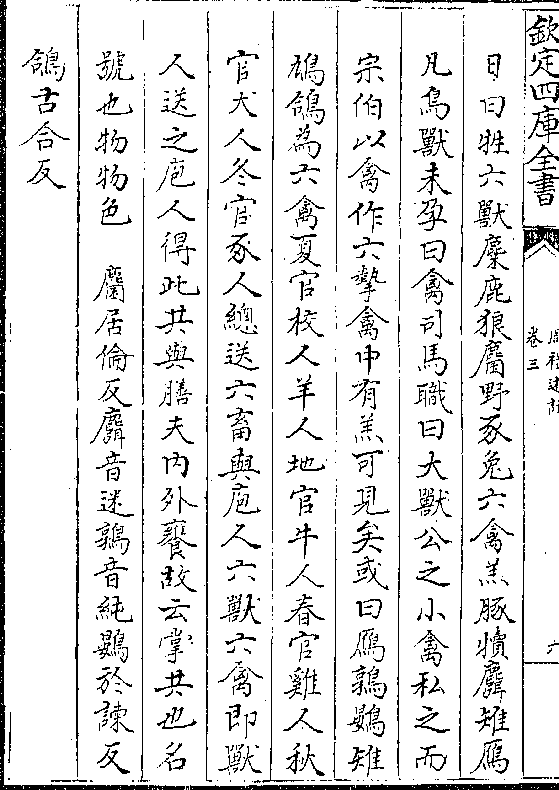 欽定四庫全書
卷三
六
日曰牲六獸麋鹿狼麕野豕兔六禽羔豚犢麛雉鴈
凡鳥獸未孕曰禽司馬職曰大獸公之小禽私之而
宗伯以禽作六摯禽中有羔可見矣或曰鴈鶉鷃雉
鳩鴿為六禽夏官校人羊人地官牛人春官雞人秋
官犬人冬官豕人總送六畜與庖人六獸六禽即獸
人送之庖人得此共與膳夫內外饔故云掌共也名
號也物物色　麕居倫反麛音迷鶉音純鷃於諫反
鴿古合反